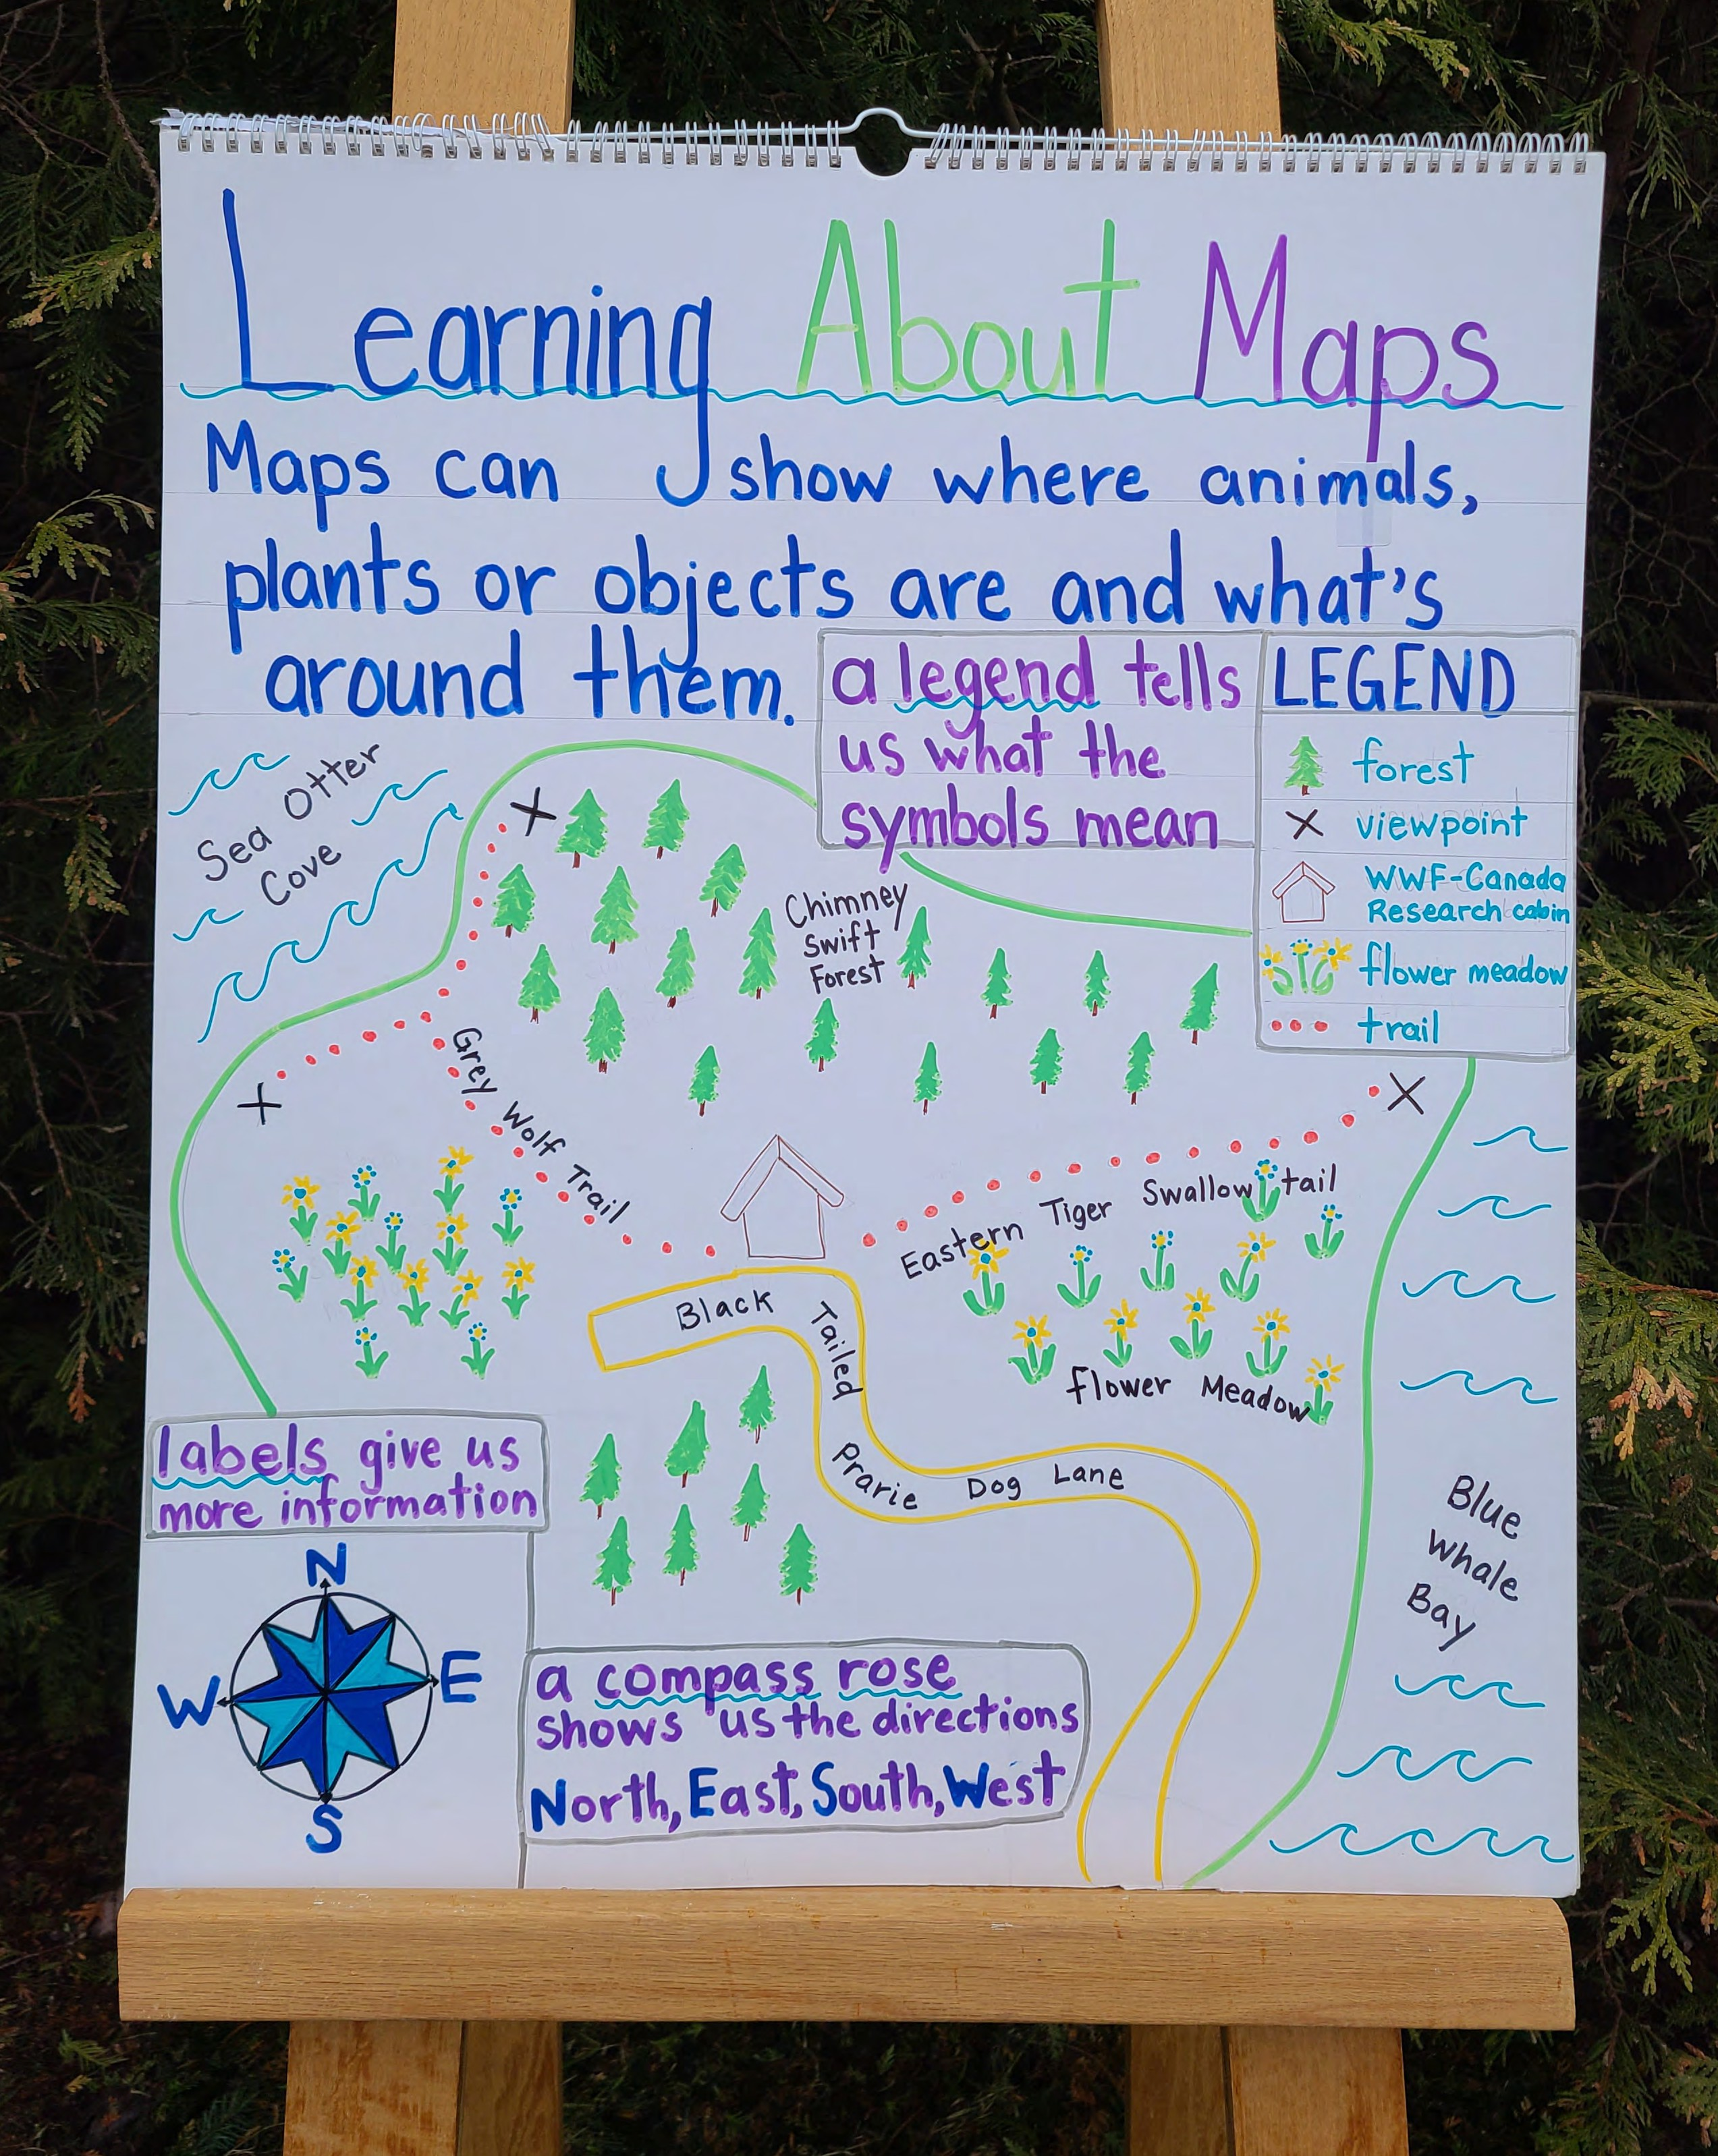 Learning About Maps
Maps can show where animals,
plants or objects are and what's
around them.
a legend tells
us what the
symbols mean
LEGEND
forest
viewpoint
WWF-Canada
Research cabin
flower meadow
trail
Sea Otter
Cove
Chimney
Swift
Forest
Grey Wolf Trail
Eastern Tiger Swallowtail
flower Meadow
Black Tailed Prarie Dog Lane
Blue
Whale
Bay
labels give us
more information
N
W E
S
a compass rose
shows us the directions
North, East, South, West